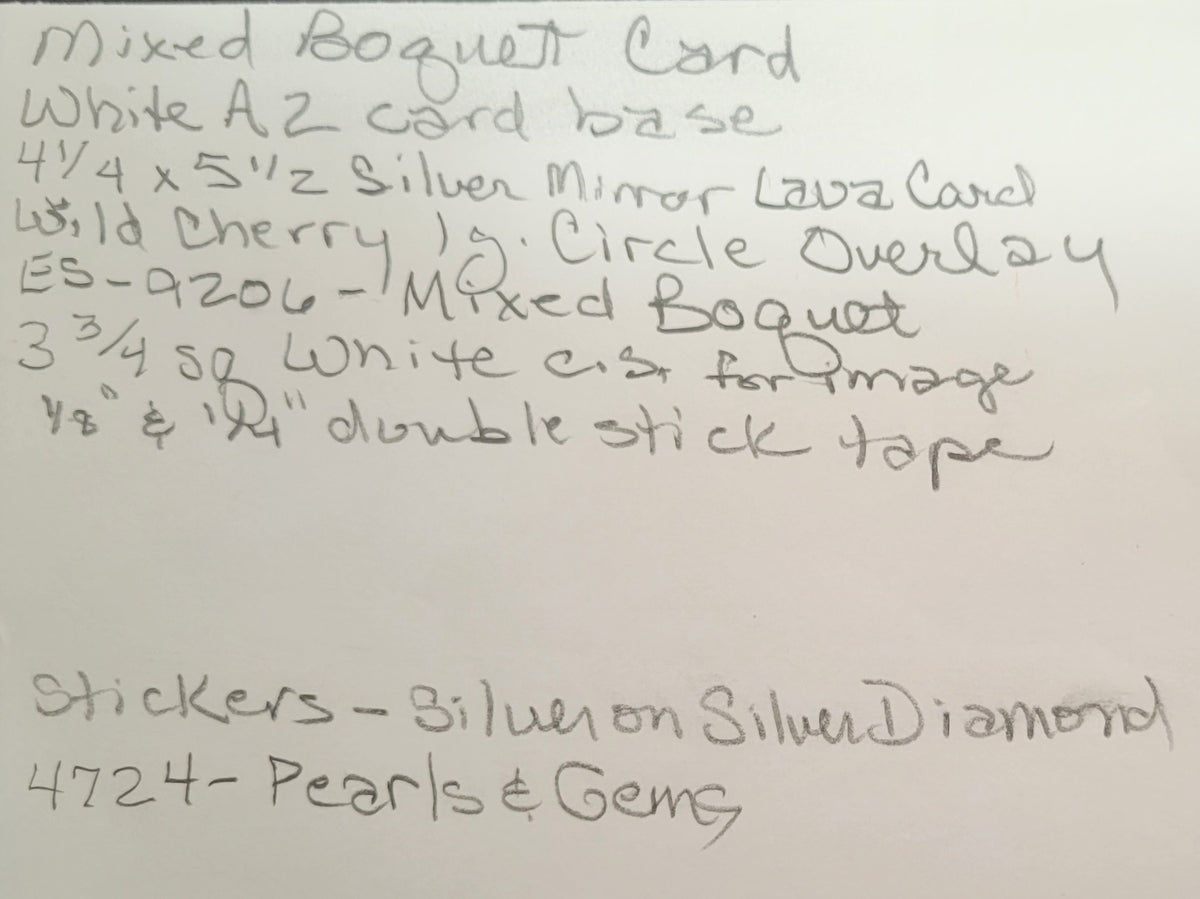 Mixed Boquett Card
White A2 card base
4 1/4 x 5 1/2 Silver Mirror Lava Card
Wild Cherry lg. Circle Overlay
ES-9206 - Mixed Boquet
3 3/4 sq White c.s. for image
1/8" & 1/4" double stick tape
Stickers - Silver on Silver Diamond
4724 - Pearls & Gems